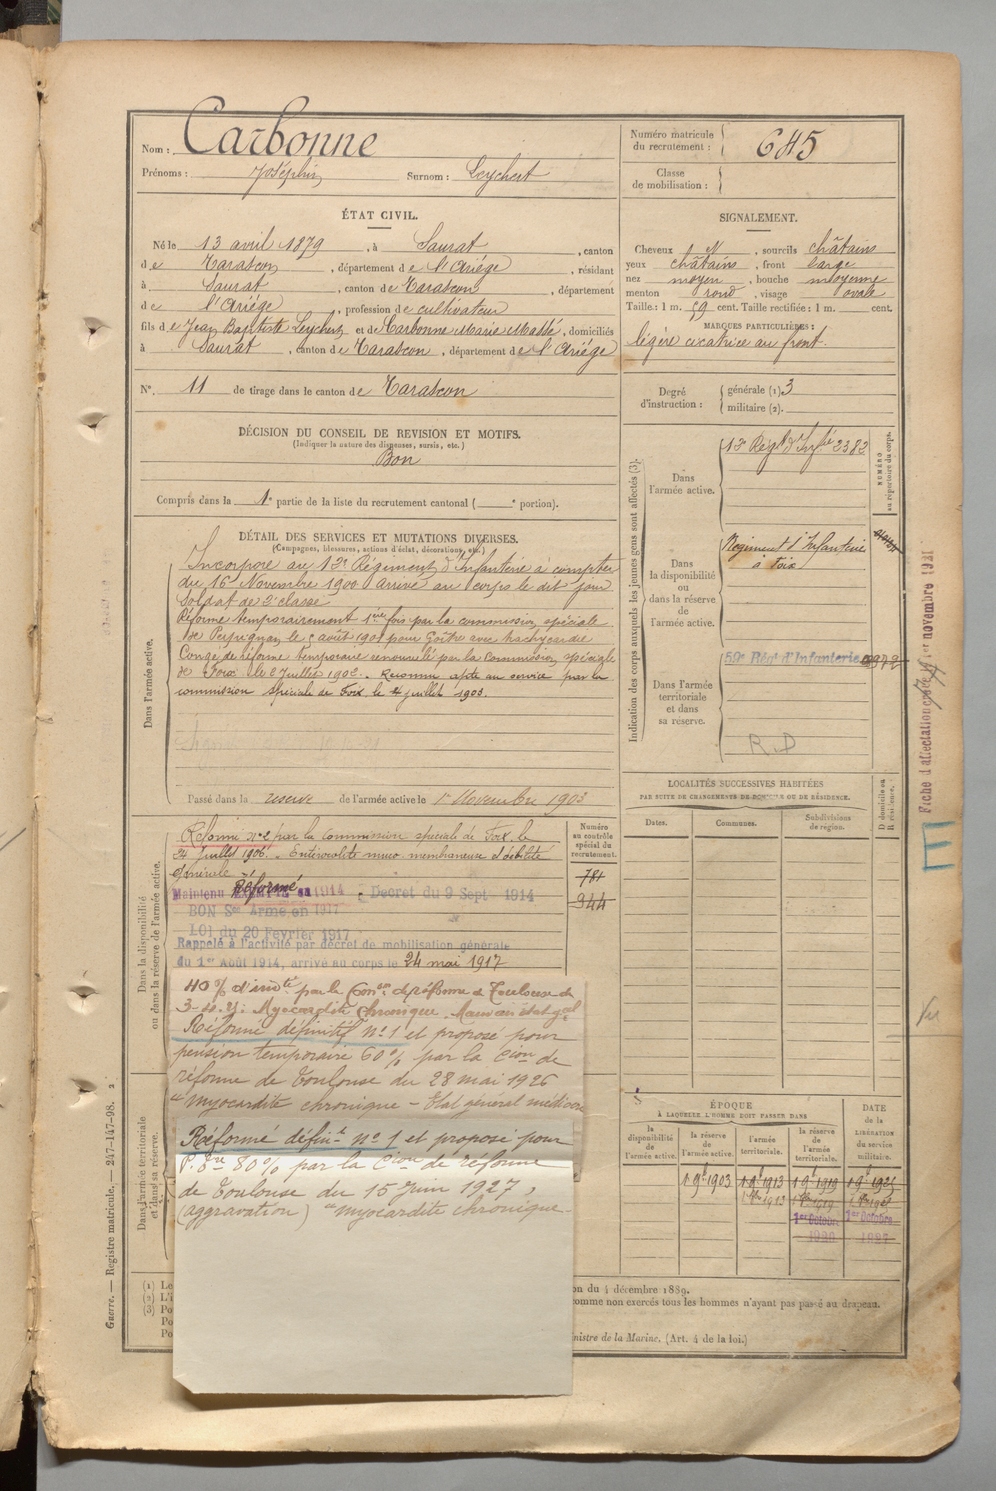 Nom : Carbonne
Prénoms : Joséphin Surnom : Leychert
Numéro matricule du recrutement : 645
Classe de mobilisation :
ÉTAT CIVIL.
Né le 13 avril 1879, à Saurat, canton
de Tarascon, département de l'Ariège, résidant
à Saurat, canton de Tarascon, département
de l'Ariège, profession de cultivateur
fils de Jean Baptiste Leychert et de Carbonne Marie Massé, domiciliés
à Saurat, canton de Tarascon, département de l'Ariège
N° 11 de tirage dans le canton de Tarascon
SIGNALEMENT.
Cheveux N, sourcils châtains
yeux châtains, front large
nez moyen, bouche moyenne
menton rond, visage ovale
Taille : 1 m. 59 cent. Taille rectifiée : 1 m. cent.
MARQUES PARTICULIÈRES :
légère cicatrice au front.
Degré d'instruction : générale (1) 3
militaire (2).
DÉCISION DU CONSEIL DE REVISION ET MOTIFS.
(Indiquer la nature des dispenses, sursis, etc.)
Bon
Compris dans la 1e partie de la liste du recrutement cantonal ( e portion).
DÉTAIL DES SERVICES ET MUTATIONS DIVERSES.
(Campagnes, blessures, actions d'éclat, décorations, etc.)
Dans l'armée active.
Incorporé au 13e Régiment d'Infanterie à compter
du 16 Novembre 1900 Arrivé au corps le dit jour
Soldat de 2e classe
Réformé temporairement 1ère fois par la commission spéciale
de Perpignan le août 1901 pour Goître avec tachycardie
Congé de réforme temporaire renouvelé par la Commission spéciale
de Foix le 2 Juillet 1902. Reconnu apte au service par la
commission spéciale de Foix le 4 juillet 1903.
Passé dans la réserve de l'armée active le 1er Novembre 1903
Indication des corps auxquels les jeunes gens sont affectés (3).
NUMÉRO au répertoire du corps.
Dans l'armée active.
13e Régt d'Infie 2382
Dans la disponibilité ou dans la réserve de l'armée active.
Régiment d'Infanterie
à Foix
Dans l'armée territoriale et dans sa réserve.
59e Régt d'Infanterie
R.D
Fiche d'affectation 1er novembre 1921
LOCALITÉS SUCCESSIVES HABITÉES
PAR SUITE DE CHANGEMENTS DE DOMICILE OU DE RÉSIDENCE.
D domicile ou R résidence.
Dates. Communes. Subdivisions de région.
Dans la disponibilité ou dans la réserve de l'armée active.
Numéro au contrôle spécial du recrutement.
Réformé n°2 par la Commission spéciale de Foix le
24 Juillet 1906. Entérocolite muco membraneuse débilité
générale
781
944
Maintenu Réformé 1914 - Décret du 9 Sept 1914
BON Sce Armé en 1917
LOI du 20 Février 1917
Rappelé à l'activité par décret de mobilisation générale
du 1er Août 1914, arrivé au corps le 24 mai 1917
40% d'invté par la Conon de réforme de Toulouse du
Myocardite chronique. Mauvais état gal
Réformé définitif n°1 et proposé pour
pension temporaire 60% par la Cion de
réforme de Toulouse du 28 mai 1926
"myocardite chronique - Etat général médiocre
Réformé définit n°1 et proposé pour
P. Tre 80% par la Cion de réforme
de Toulouse du 15 Juin 1927,
(aggravation) "myocardite chronique.
Dans l'armée territoriale et dans sa réserve.
ÉPOQUE
À LAQUELLE L'HOMME DOIT PASSER DANS
DATE DE LA LIBÉRATION du service militaire.
la disponibilité de l'armée active.
la réserve de l'armée active.
l'armée territoriale.
la réserve de l'armée territoriale.
1 9bre 1903 1 9bre 1913 1 9bre 1919 1 9bre 1925
1er Octobre 1er Octobre
on du 4 décembre 1889.
omme non exercés tous les hommes n'ayant pas passé au drapeau.
nistre de la Marine. (Art. 4 de la loi.)
Guerre. — Registre matricule. — 247-147-98.